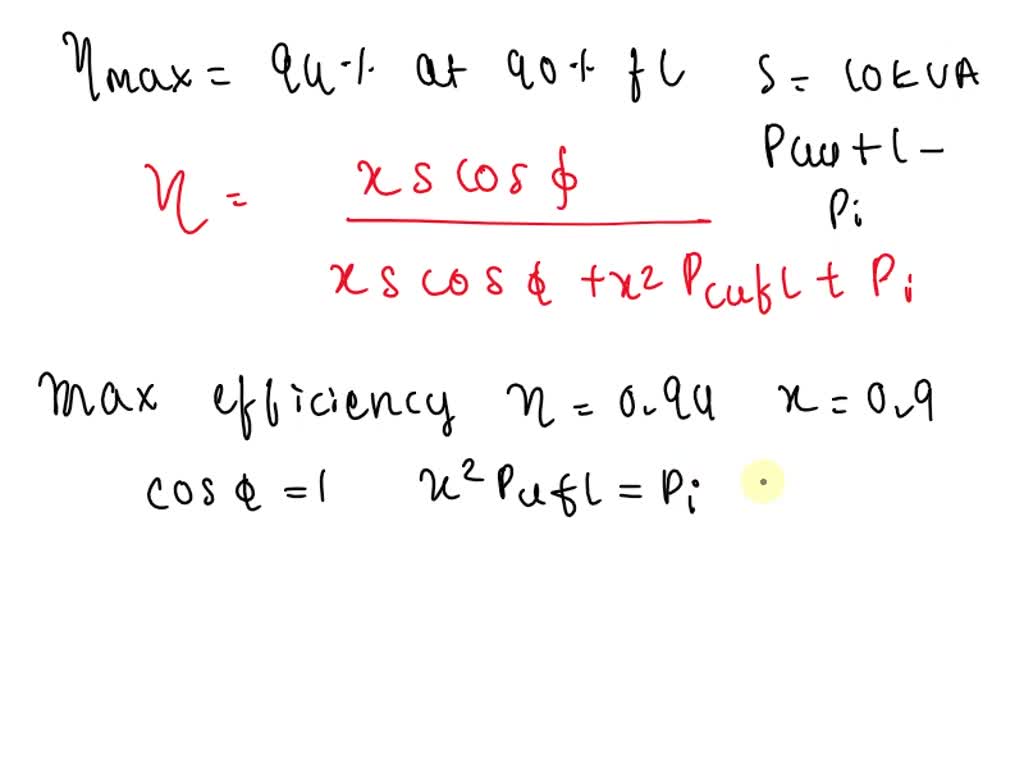 ηmax = 94% at 90% fl S = 10kVA
Pcu+l -
Pi
η = x s cos ϕ / x s cos ϕ + x² Pcufl + Pi
max efficiency η = 0.94 x = 0.9
cos ϕ = 1 x² Pcufl = Pi